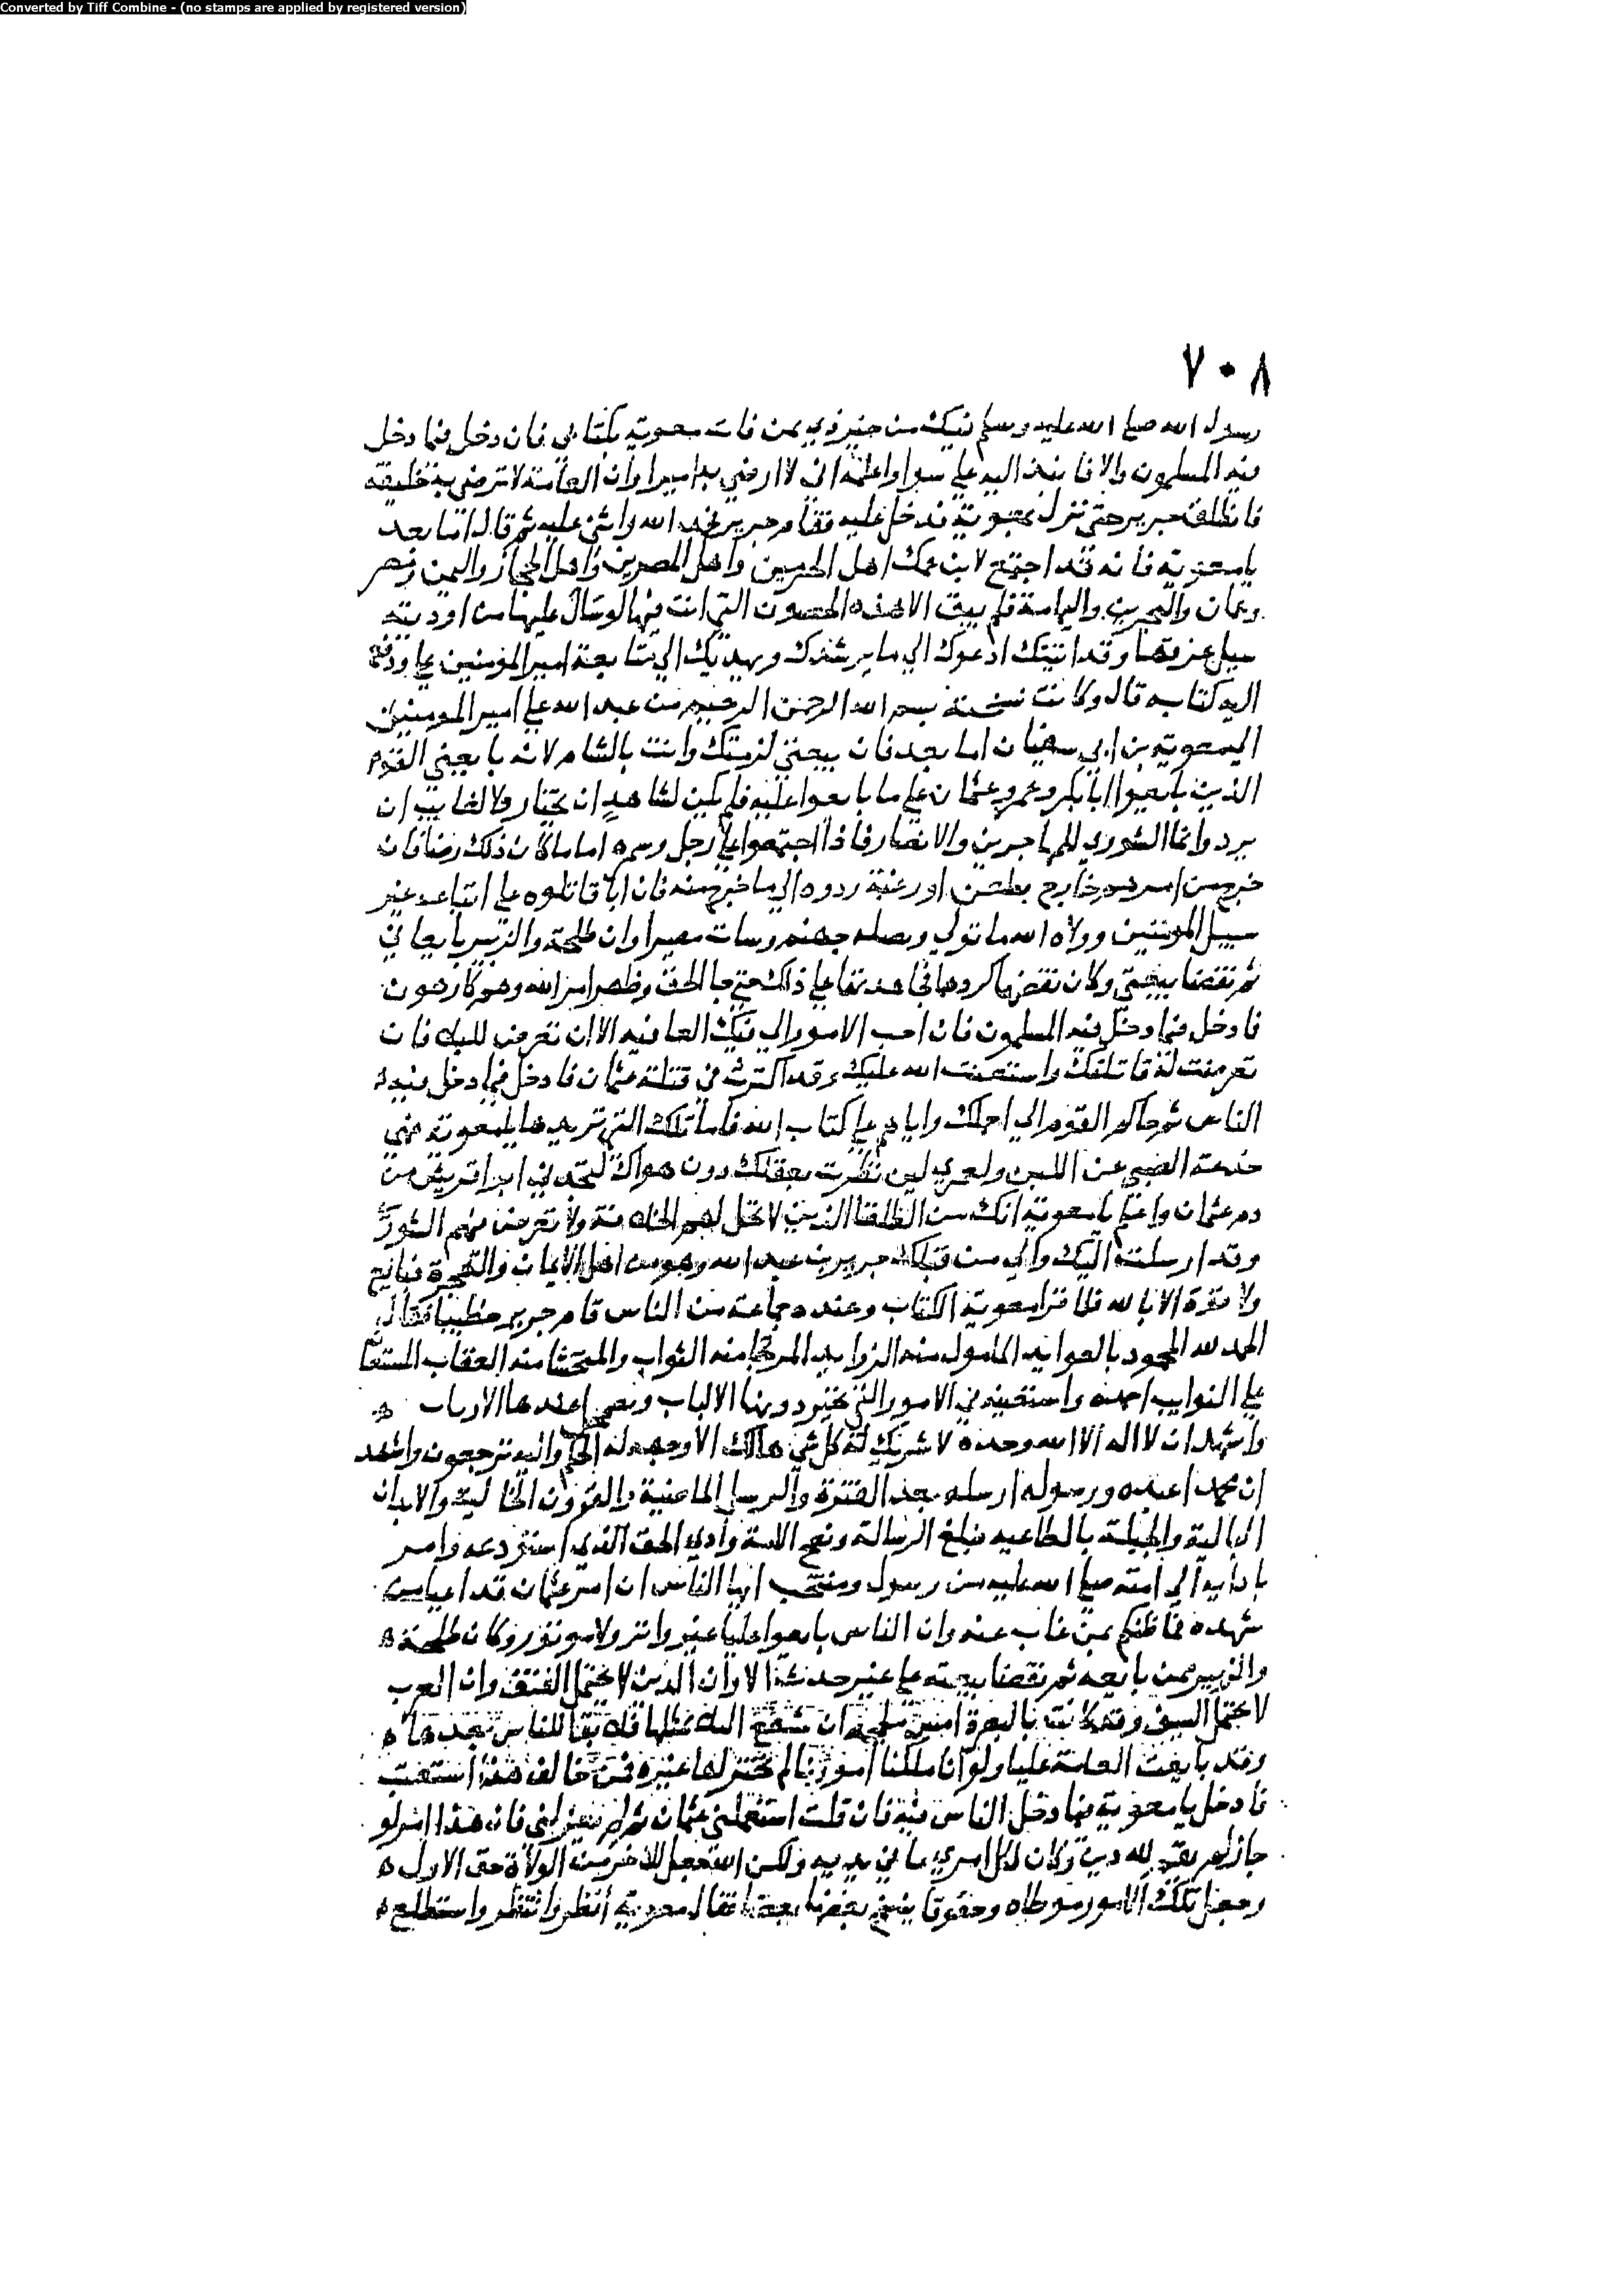 Converted by Tiff Combine - (no stamps are applied by registered version)
٧٠٨
رسول الله صلي الله عليه وسلم فيك من خير ذي يمن فات معوية بكتابي فان دخل فيما دخل
فيه المسلمون والا فانبذ اليه علي سوا واعلمه اني لا ارضي به اميرا وان العامة لا ترضي به خليفة
فانطلق جرير حتي نزل بمعوية فدخل عليه فقام جرير فحمد الله واثني عليه ثم قال اما بعد
يا معوية فانه قد اجتمع لابن عمك اهل الحرمين واهل المصرين واهل الحجاز واليمن ومصر
وعمان والبحرين واليمامة فلم يبق الا هذه الحصون التي انت فيها لو سال عليها من اوديته
سيل غرقها وقد اتيتك ادعوك الي ما يرشدك ويهديك الي متابعة امير المؤمنين علي ودفع
اليه كتابه قال وكانت نسخته بسم الله الرحمن الرحيم من عبد الله علي امير المومنين
الي معوية بن ابي سفيان اما بعد فان بيعتي لزمتك وانت بالشام لانه بايعني القوم
الذين بايعوا ابا بكر وعمر وعثمان علي ما بايعوا عليه فلم يكن لشاهد ان يختار ولا لغايب ان
يرد وانما الشوري للمهاجرين والانصار فاذا اجتمعوا علي رجل وسموه اماما كان ذلك رضا فان
خرج من امرهم خارج بطعن او رغبة ردوه الي ما خرج منه فان ابا قاتلوه علي اتباعه غير
سبيل المومنين وولاه الله ما تولي ويصله جهنم وسات مصيرا وان طلحة والزبير بايعاني
ثم نقضا بيعتي وكان نقضهما كردهما فجاهدتهما علي ذلك حتي جا الحق وظهر امر الله وهم كارهون
فادخل فيما دخل فيه المسلمون فان احب الامور الي فيك العافيه الا ان تعرض للبلا فان
تعرضت له قاتلتك واستعنت الله عليك وقد اكثرت في قتلة عثمان فادخل فيما دخل فيه
الناس ثم حاكم القوم الي احملك واياهم علي كتاب الله فاما تلك التي تريدها يا معوية فهي
خدعة الصبي عن اللبن ولعمري لين نظرت بعقلك دون هواك لتجدني ابرا قريش من
دم عثمان واعلم يا معوية انك من الطلقا الذين لا تحل لهم الخلافة ولا تعرض فيهم الشوري
وقد ارسلت اليك والي من قبلك جرير بن عبد الله وهو من اهل الايمان والهجرة فبايع
ولا قوة الا بالله فلما قرا معوية الكتاب وعنده جماعة من الناس قام جرير خطيبا فقال
الحمد لله المحمود بالعوايد المامول منه الزوايد المرتجا منه الثواب والمخشا منه العقاب المستعان
علي النوايب احمده واستعينه في الامور التي تحير دونها الالباب وتضمحل عندها الارباب
واشهد ان لا اله الا الله وحده لا شريك له كل شي هالك الا وجهه له الحكم واليه ترجعون واشهد
ان محمدا عبده ورسوله ارسله بعد الفترة والرسل الماضية والقرون الخالية والابدان
البالية والجبلة بالطاعيه فبلغ الرسالة ونصح الامة وادي الحق الذي استودعه وامر
بادايه الي امته صلي الله عليه من رسول ومنتجب ايها الناس ان امر عثمان قد اعيا من
شهده فما ظنكم بمن غاب عنه وان الناس بايعوا عليا غير واتر ولا موتور وكان طلحة
والزبير ممن بايعه ثم نقضا بيعته علي غير حدث الا وان الدين لا يحتمل الفتق وان العرب
لا تحتمل السيف وقد كانت بالبصرة امس ملحمة ان تشفع البلا بمثلها فلا بقا للناس بعدها
وقد بايعت العامة عليا ولو انا ملكنا امورنا لم نختر لها غيره فمن خالف هذا استعتب
فادخل يا معوية فيما دخل الناس فيه فان قلت استعملني عثمان ثم لم يعزلني فان هذا امر لو
جاز لم يقم لله دين وكان لكل امري ما في يديه ولكن الله جعل للاخر من الولاة حق الاول
وجعل تلك الامور موطاه وحقوقا ينسخ بعضها بعضا فقال معوية أنظر وانتظر واستطلع